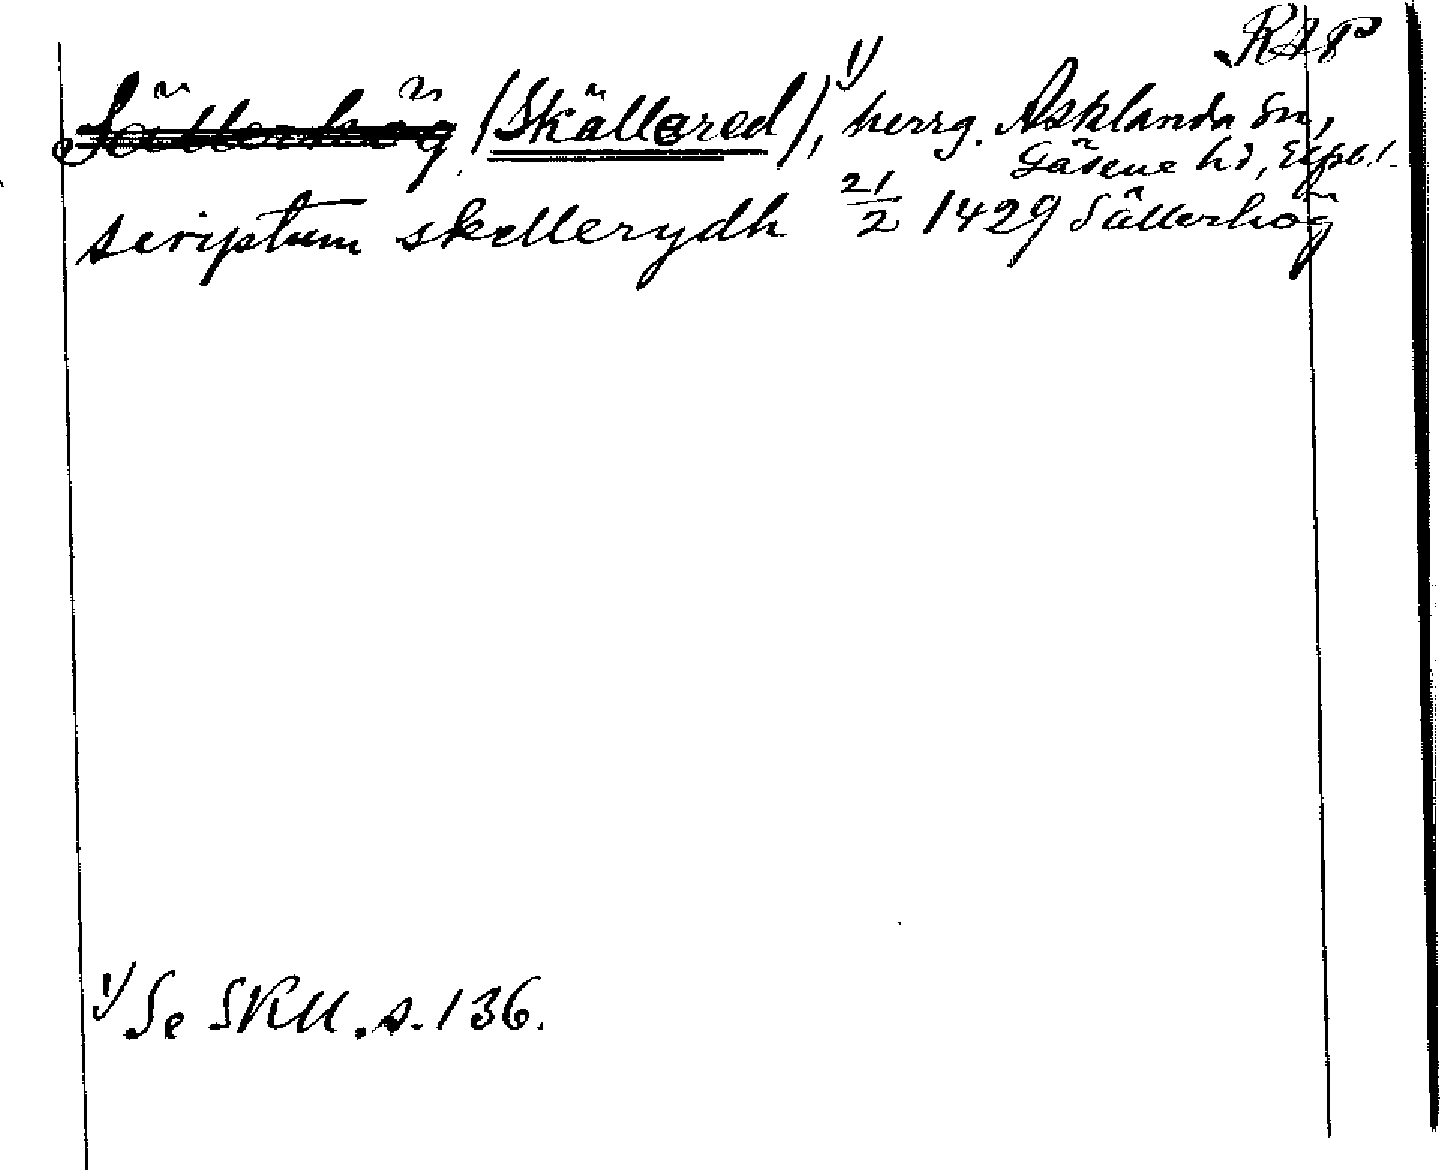 RAP
Sällerhög (Skällared),¹⁾ herrg. Asklanda sn,
Gäsene hd, Elfsb. l.
scriptum skellerydh 21/2 1429 Sällerhög
¹⁾ Se SRU. s. 136.